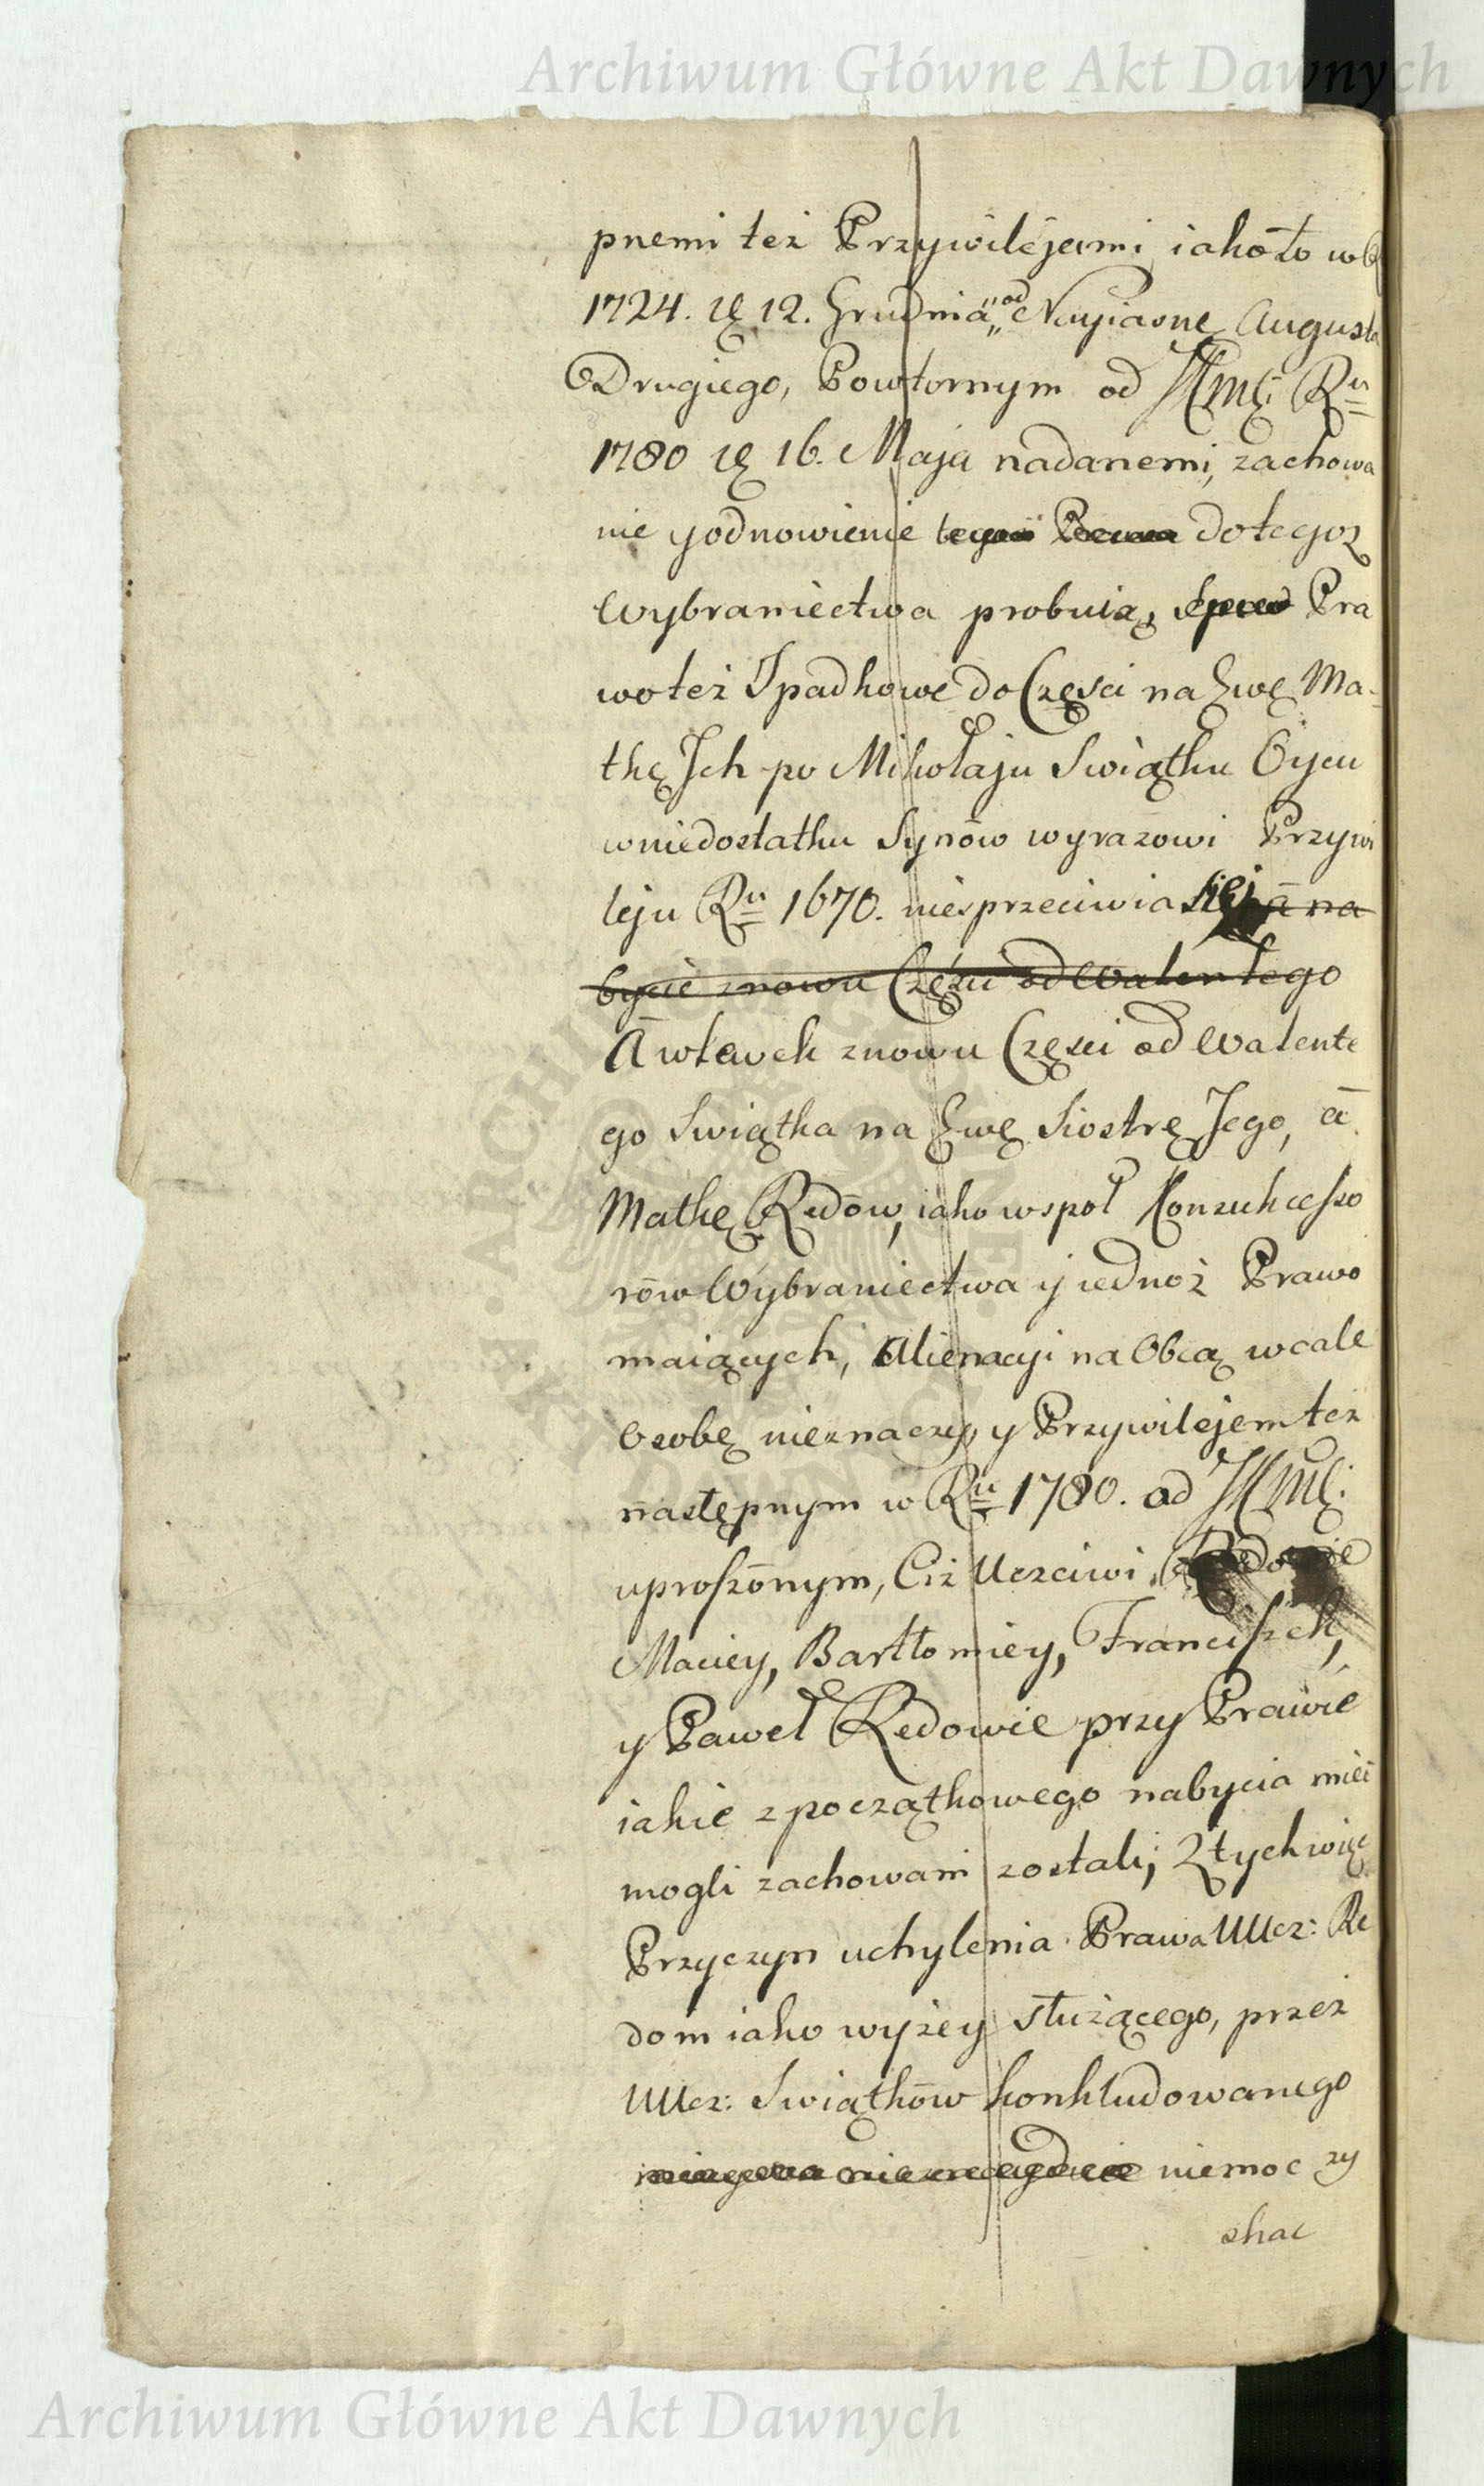 Archiwum Główne Akt Dawnych
pnemi też Przywilejami iakoto w R
1724. zę 12. Grudnia od Nayiasnę Augusta
Drugiego, Powtornym od JKMCi Ru
1780 zę 16. Maja nadanemi, zachowa
nie y odnowienie tegoż Prawa do tegoż
Wybraniectwa probuią, Pra
wo też Spadkowe do Częsci na Ewę Ma-
tkę Jch po Mikołaju Swiątku Oycu
w niedostatku Synów wyrazowi Przywi
leju Ru 1670. niesprzeciwia się, à na
bycie znowu Częsci od Walentego
A wlewek znowu Częsci od Walente
go Swiątka na Ewę Siostrę Jego, à
Matkę Redów, iako wspoł Konsukcesso
rów Wybraniectwa y iednoż Prawo
maiących, Alienacyi na Obcą wcale
Osobę nieznaczy, y Przywilejem też
następnym w Ru 1780. od JKMCi
uproszonym, Ciż Uczciwi Redowie
Maciey, Bartłomiey, Franciszek,
y Paweł Redowie przy Prawie
iakie z początkowego nabycia mieć
mogli zachowani zostali; Z tych więc
Przyczyn uchylenia Prawa UUcz: Re
dom iako wyżey służącego, przez
UUcz: Swiątków konkludowanego
niemoc zy
skac
Archiwum Główne Akt Dawnych